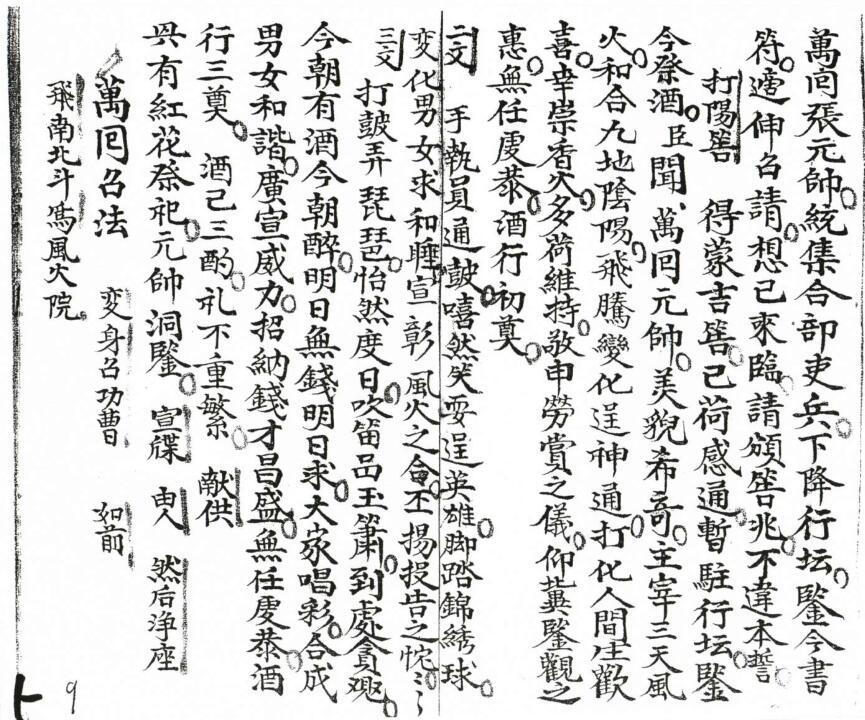 萬囘張元帥。統集合部吏兵。下降行坛。鑒今書
符。適伸召請。想已來臨。請頒筶兆。不違本誓。
打陽筶　得蒙吉筶。已荷感通。暫駐行坛。鑒
今祭酒。臣聞、萬囘元帥。美貌希奇。主宰三天風
火。和合九地陰陽。飛騰變化逞神通。打化人間生歡
喜。幸崇香火。多荷維持。敬申勞賞之儀。仰冀鑒觀之
惠。無任虔恭。酒行初奠。
二文　手執員通皷。嘻然笑耍逞英雄。脚踏錦綉球。
変化男女求和睡。宣彰風火之合。丕揚投告之忱。〻
三文　打皷弄琵琶。怡然度日。吹笛品玉簫。到處貪观。
今朝有酒今朝醉。明日無錢明日求。大家唱彩。合成
男女和諧。廣宣威力。招納錢才昌盛。無任虔恭。酒
行三奠。　酒已三酌。礼不重繁。　献供
具有紅花祭祀。元帥洞鑒。　宣牒　由人　然后净座
萬囘召法　変身召功曹　如前
飛南北斗爲風火院
9